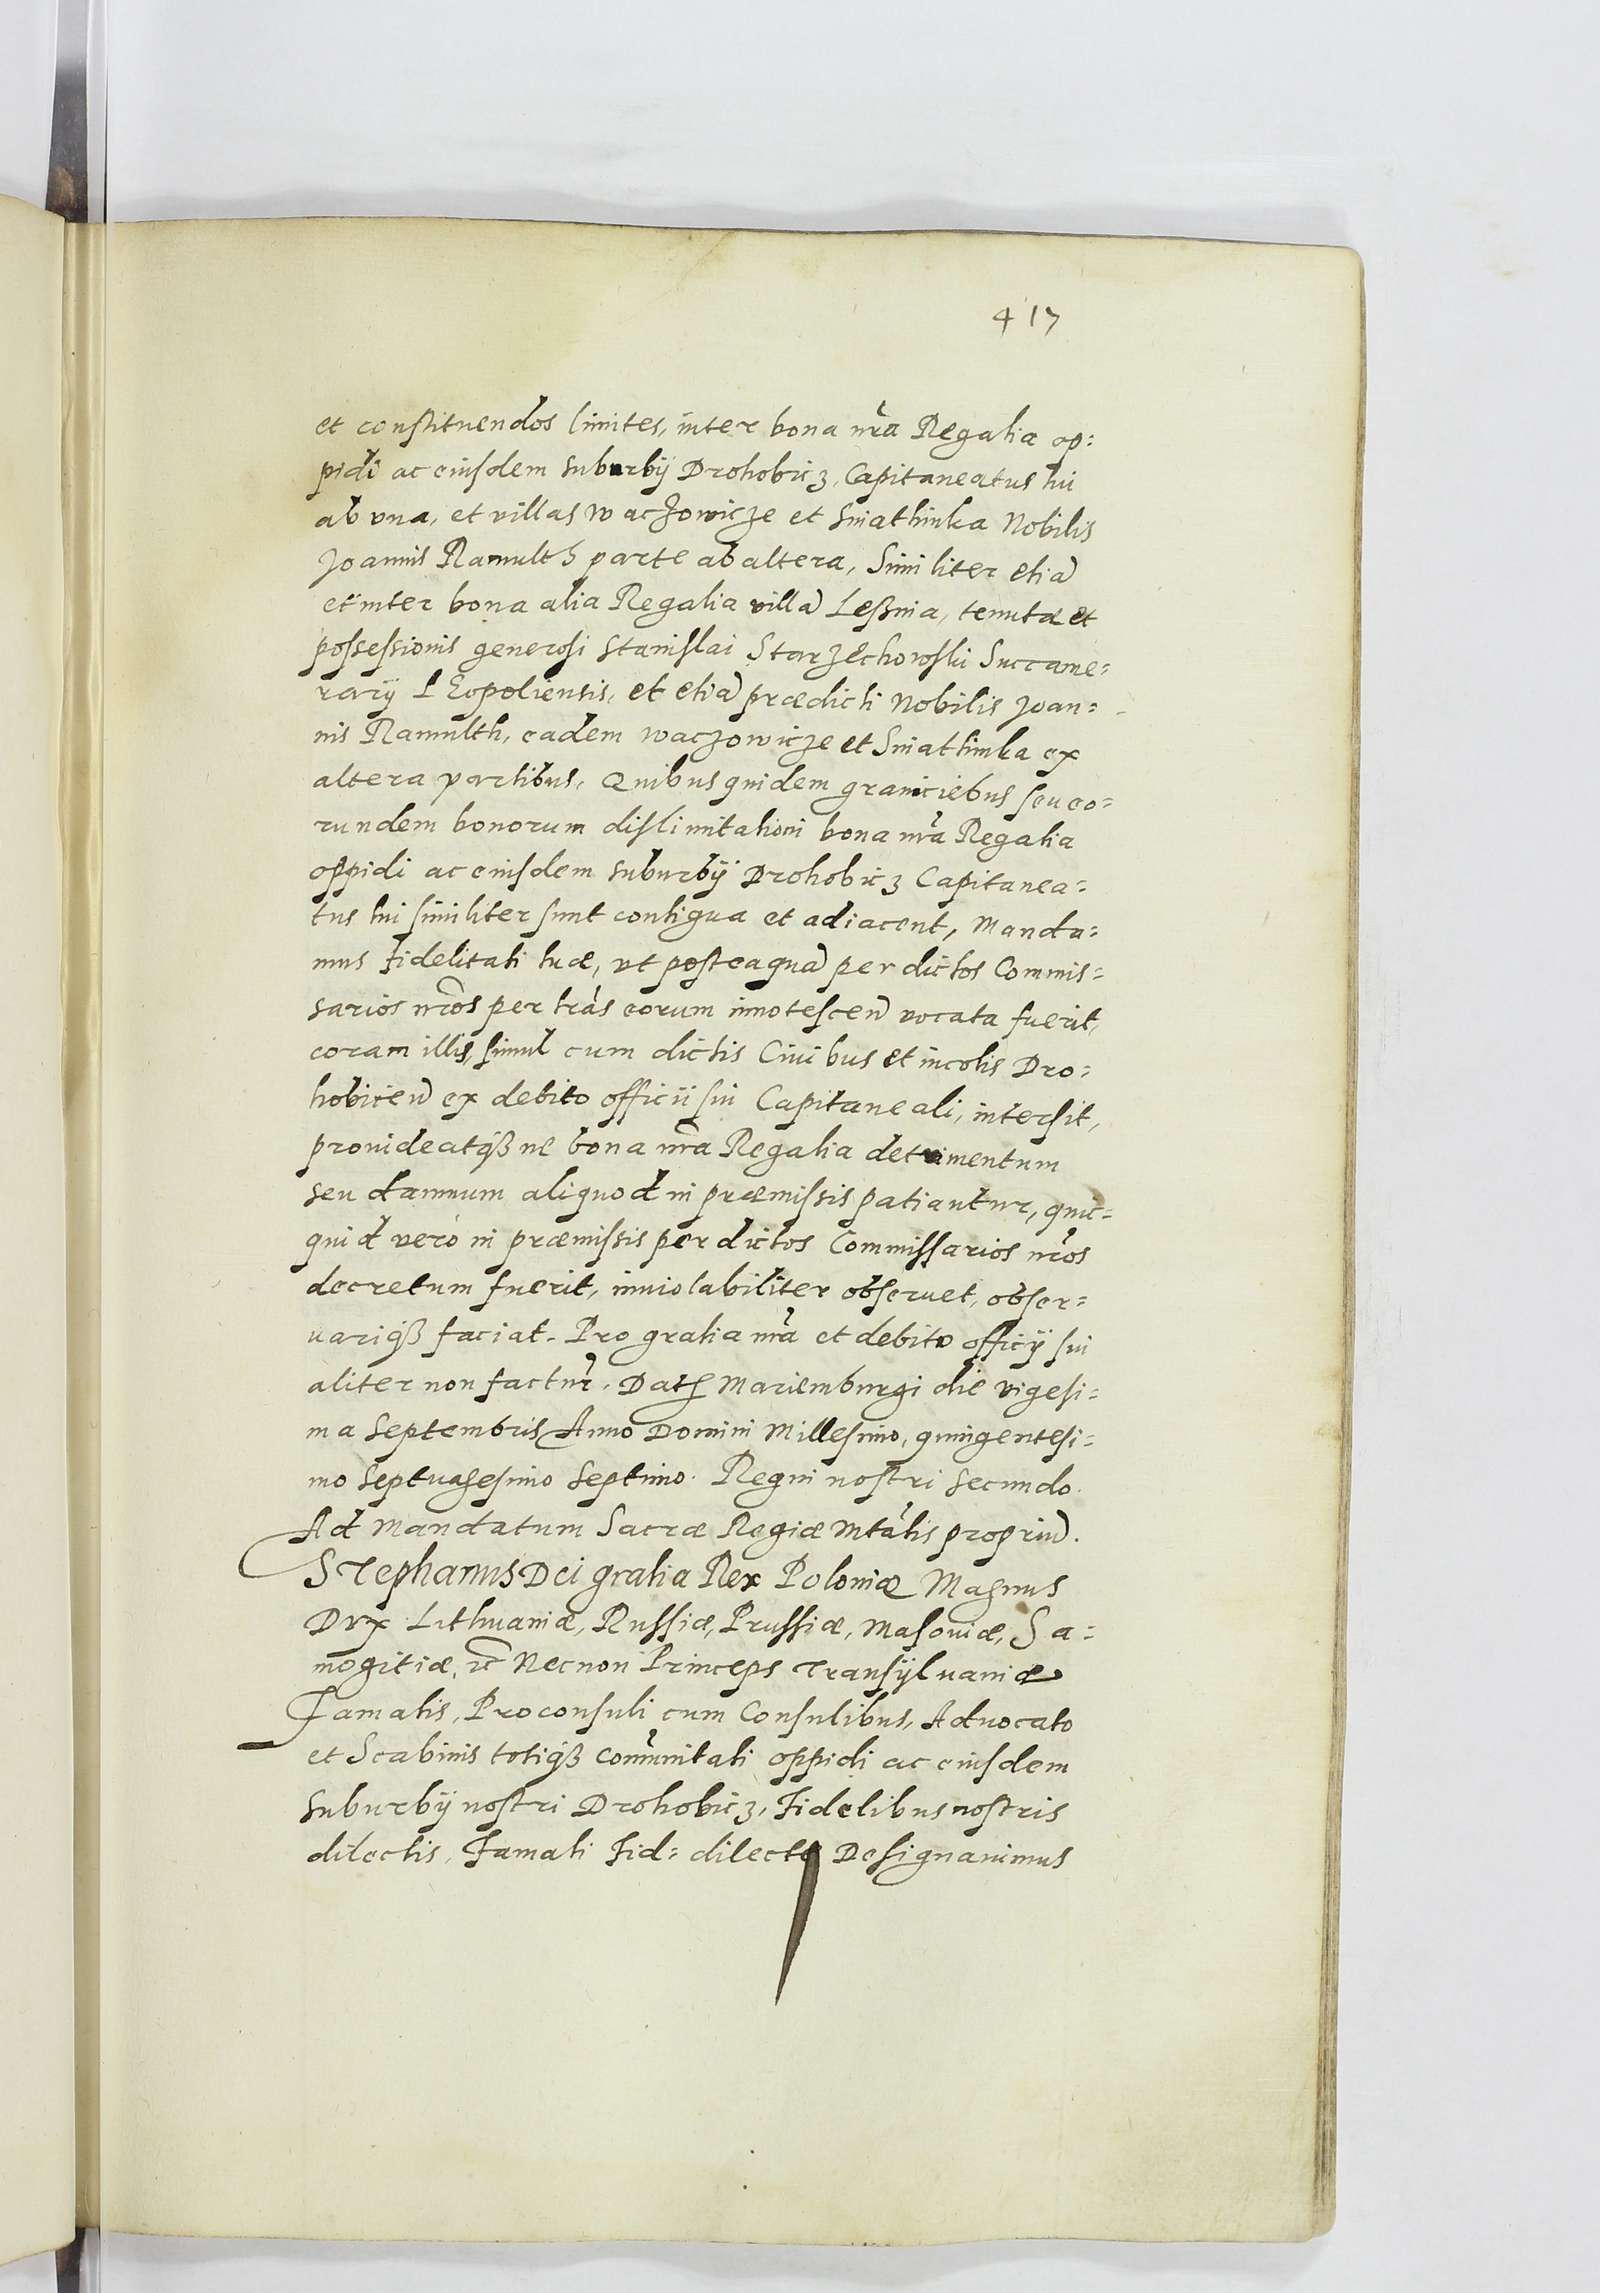 417
et constituendos limites, inter bona nr̃a Regalia op:
pidi ac eiusdem suburbÿ Drohobicz, Capitaneatus tui
ab vna, et villas Waczowicze et Sniathinka Nobilis
Joannis Ramulth parte ab altera, Similiter etiā
et inter bona alia Regalia villā Leßnia, tenutæ et
possessionis generosi Stanislai Starzechowski Succame:
rarÿ LEopoliensis, et etiā prædicti Nobilis Joan:
nis Ramulth, eadem Waczowicze et Sniathinka ex
altera partibus, Quibus quidem graniciebus seu eo:
rundem bonorum dislimitationi bona nr̃a Regalia
oppidi ac eiusdem suburbÿ Drohobicz Capitanea:
tus tui similiter sunt contigua et adiacent, Manda:
mus Fidelitati tuæ, vt posteaquā per dictos Commis:
sarios nr̃os per lr̃as eorum innotescen̄ vocata fuerit,
coram illis, simul cum dictis Ciuibus et incolis Dro:
hobicen̄ ex debito officii sui Capitaneali, intersit,
prouideatqß ne bona nr̃a Regalia detrimentum
seu damnum aliquod in præmissis patiantur, quic:
quid verò in præmissis per dictos Commissarios nr̃os
decretum fuerit, inuiolabiliter obseruet, obser:
uariqß faciat. Pro gratia nr̃a et debito officÿ sui
aliter non factur̃. Dat Mariemburgi die vigesi:
ma Septembris Anno Domini Millesimo, quingentesi:
mo Septuagesimo Septimo. Regni nostri Secundo.
Ad Mandatum Sacræ Regiæ Mt̃atis propriū.
STephanus Dei gratia Rex Poloniæ Magnus
Dux Lithuaniæ, Russiæ, Prussiæ, Masouiæ, Sa:
mogitiæ, etc̃ Necnon Princeps Transÿluaniæ
Famatis, Proconsuli cum Consulibus, Aduocato
et Scabinis totiqß Com̃unitati oppidi ac eiusdem
suburbÿ nostri Drohobicz, Fidelibus nostris
dilectis, Famati Fid: dilecti Designauimus